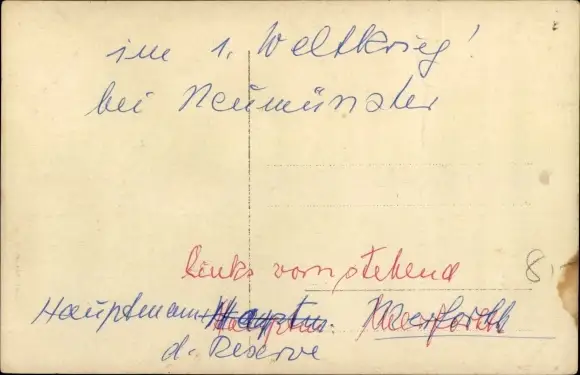 im 1. Weltkrieg!
bei Neumünster
links vorn stehend
8
Hauptmann
d. Reserve